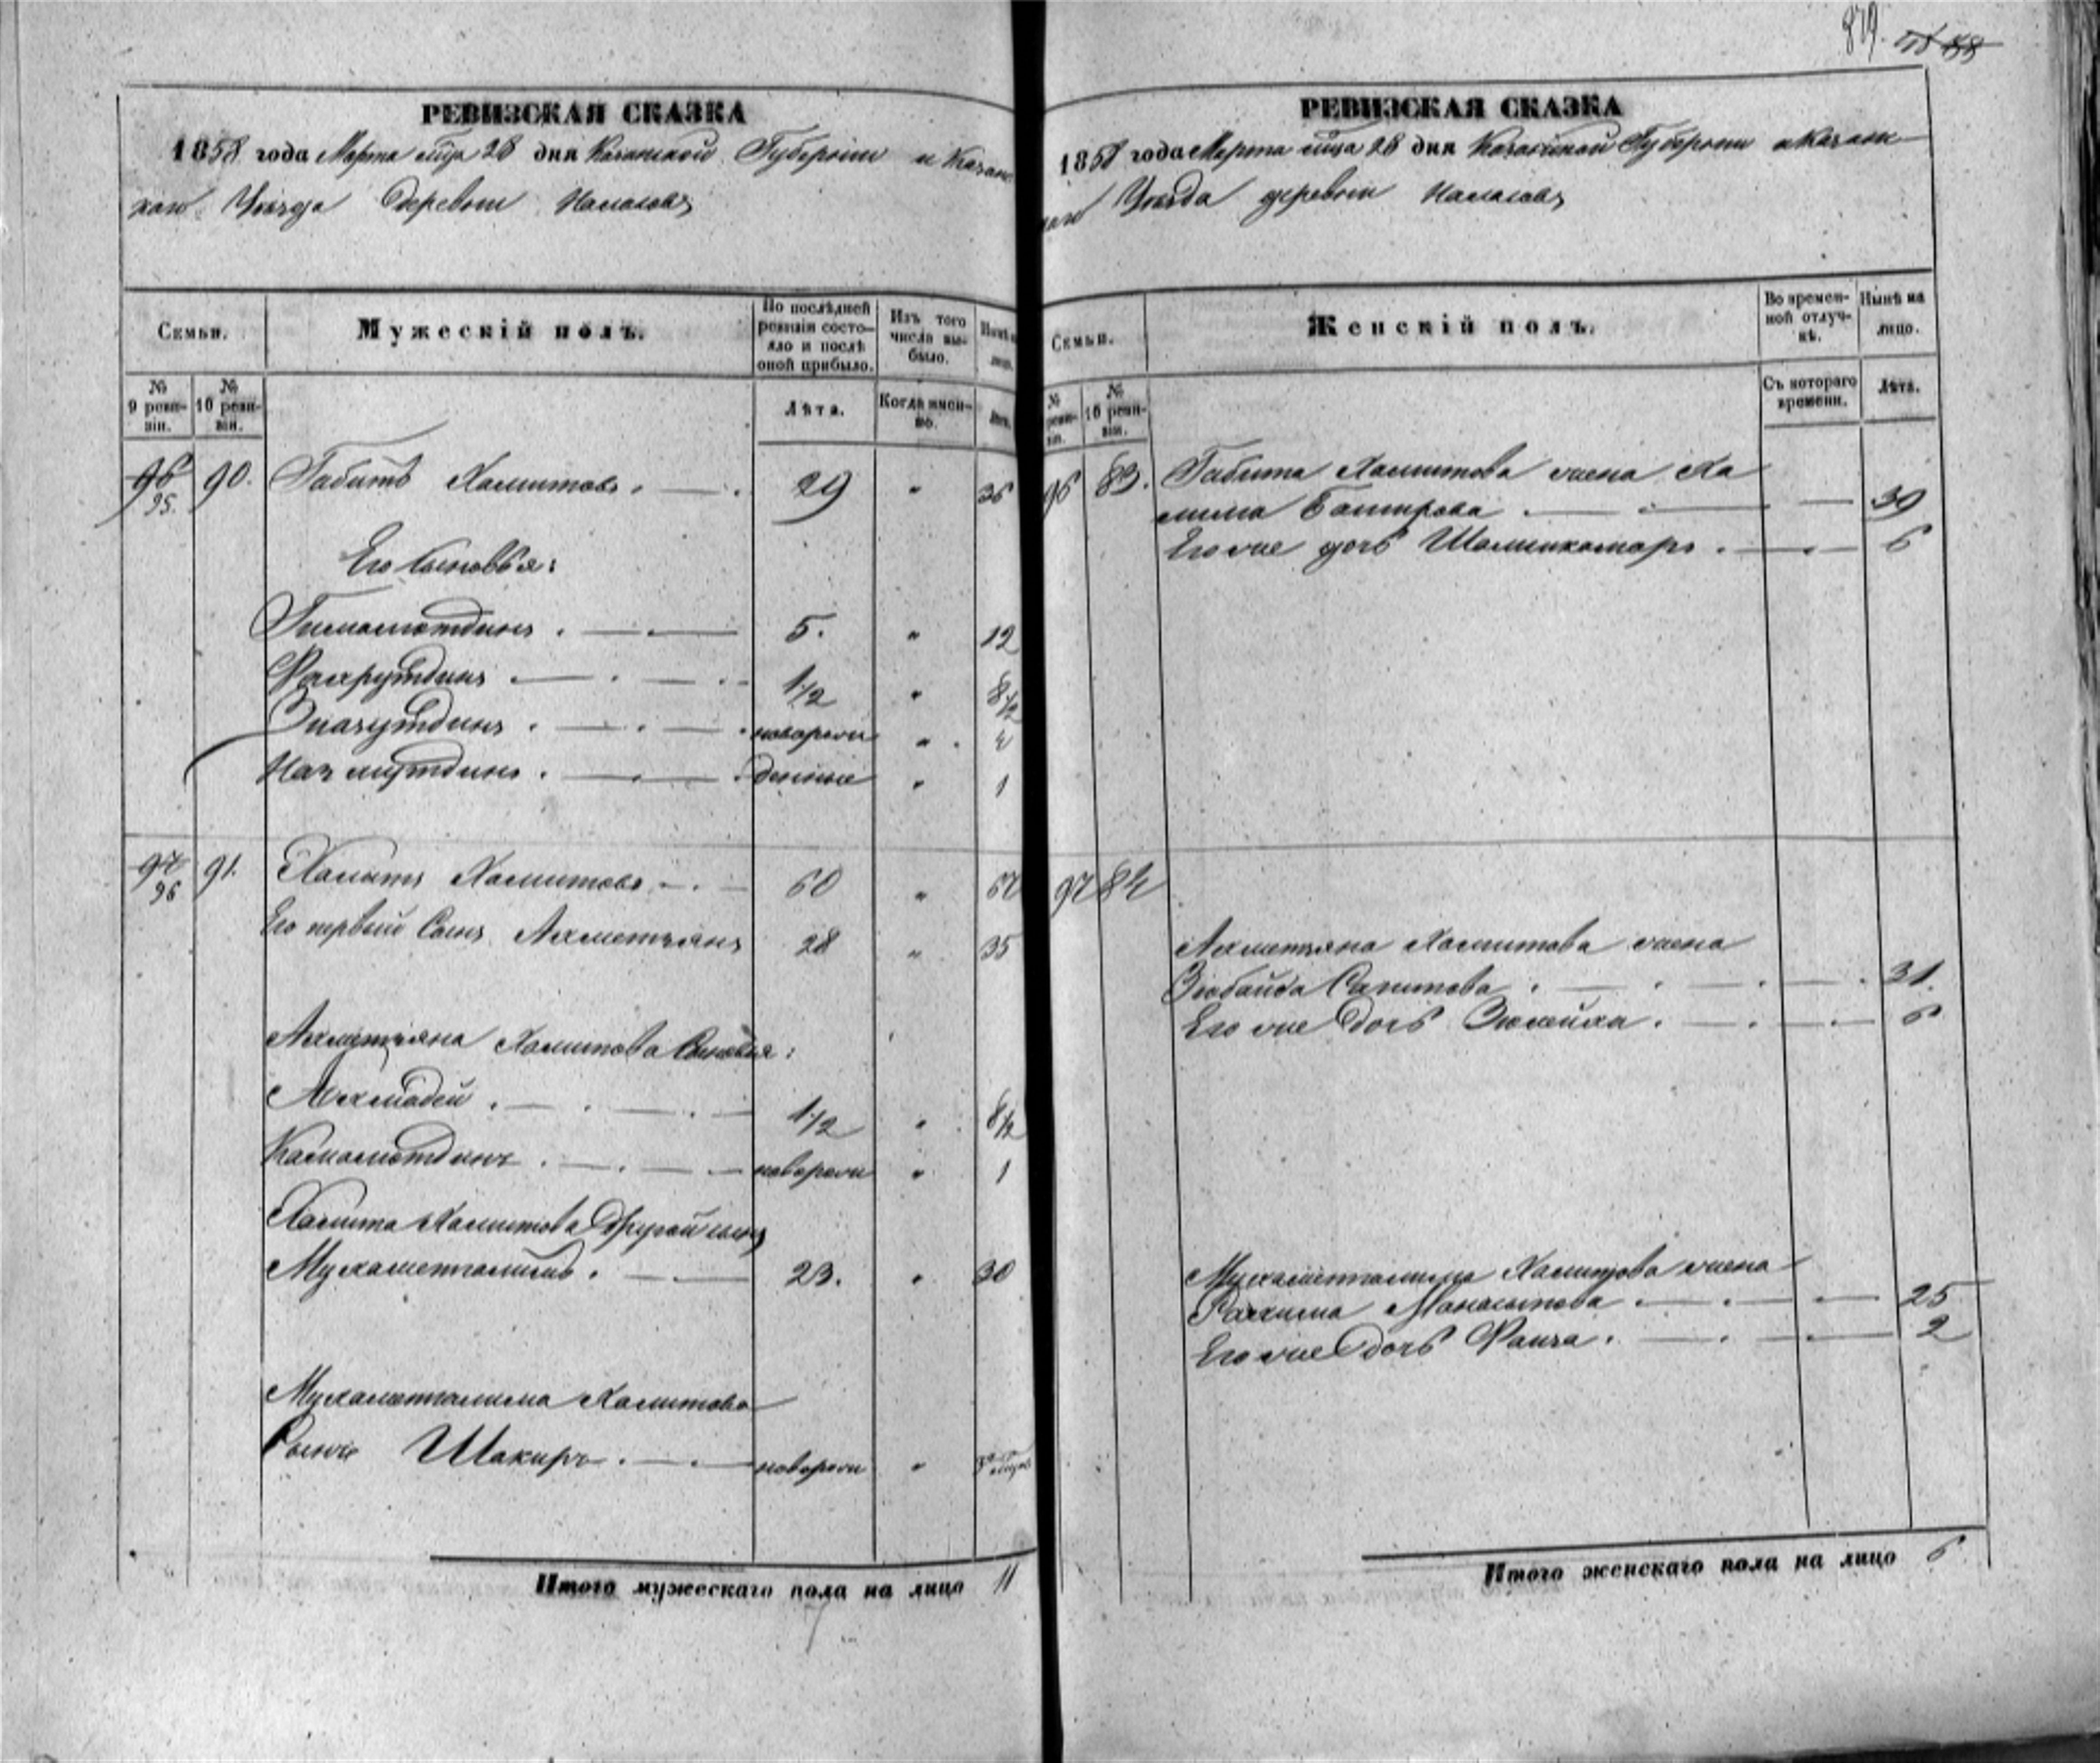 879.
РЕВИЗСКАЯ СКАЗКА
1858 года Марта м̃ца 28 дня Казанской Губернии и Казан
скаго Уѣзда Деревни
Семьи.
Мужескій полъ.
По послѣдней ревизіи состояло и послѣ оной прибыло.
Изъ того числа выбыло.
№ 9 ревизіи.
№ 10 ревизіи.
Лѣта.
Когда именно.
96 95. 90. Габитъ Хамитовъ. 29 „ 36
Его сыновья:
Гимаметдинъ. 5. „ 12
Фахрутдинъ 1/2 „ 8 1/2
новорож „ 4
денные „ 1
97 96 91. Хамитъ Хамитовъ 60 „ 67
Его первый Сынъ Ахметзянъ 28 „ 35
Ахметзяна Хамитова Сыновья:
Ахмадей. 1/2 „ 8 1/2
Камаметдинъ. новорож „ 1
Хамита Хамитова Другой сынъ
Мухаметгалимъ. 23. „ 30
Мухаметгалима Хамитова
Сынъ Шакиръ. новорож „
Итого мужескаго пола на лицо 11
РЕВИЗСКАЯ СКАЗКА
1858 года Марта м̃ца 28 дня Казанской Губернии и Казан
скаго Уѣзда деревни
Семьи.
Женскій полъ.
Во временной отлучкѣ.
Нынѣ на лицо.
№ 10 ревизіи.
Съ котораго времени.
Лѣта.
96 83. Габита Хамитова жена Ха
лима Баширова 39
Его же дочь Шамсикамаръ. 6
97 84
Ахметзяна Хамитова жена
Зюбайда Сагитова. 31.
Его же Дочь Зюлейха. 6
Мухаметгалима Хамитова жена
Рахима Манасыпова. 25
Его же Дочь Фаиза. 2
Итого женскаго пола на лицо 6